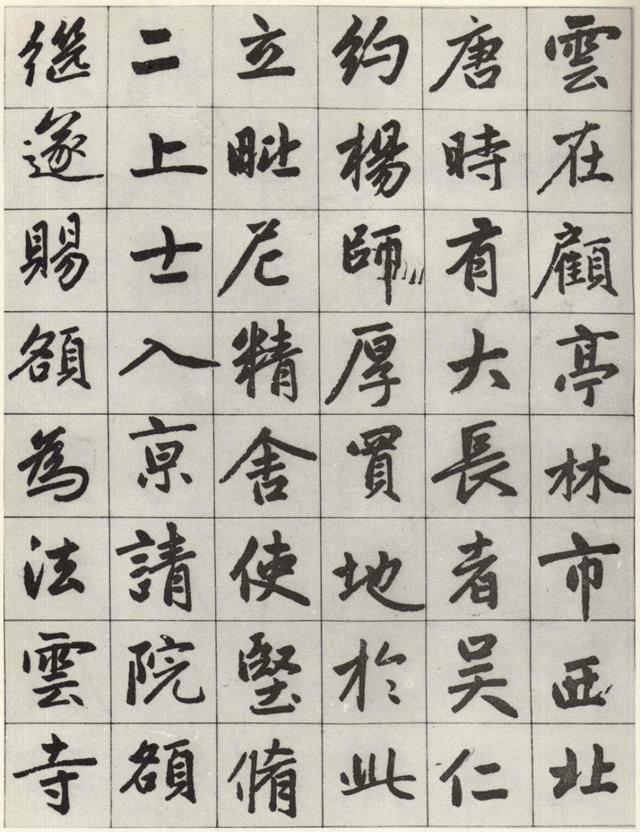 雲在顧亭林市西北
唐時有大長者吴仁
約楊師厚買地於此
立毗尼精舍使堅脩
二上士入京請院額
継遂賜額為法雲寺